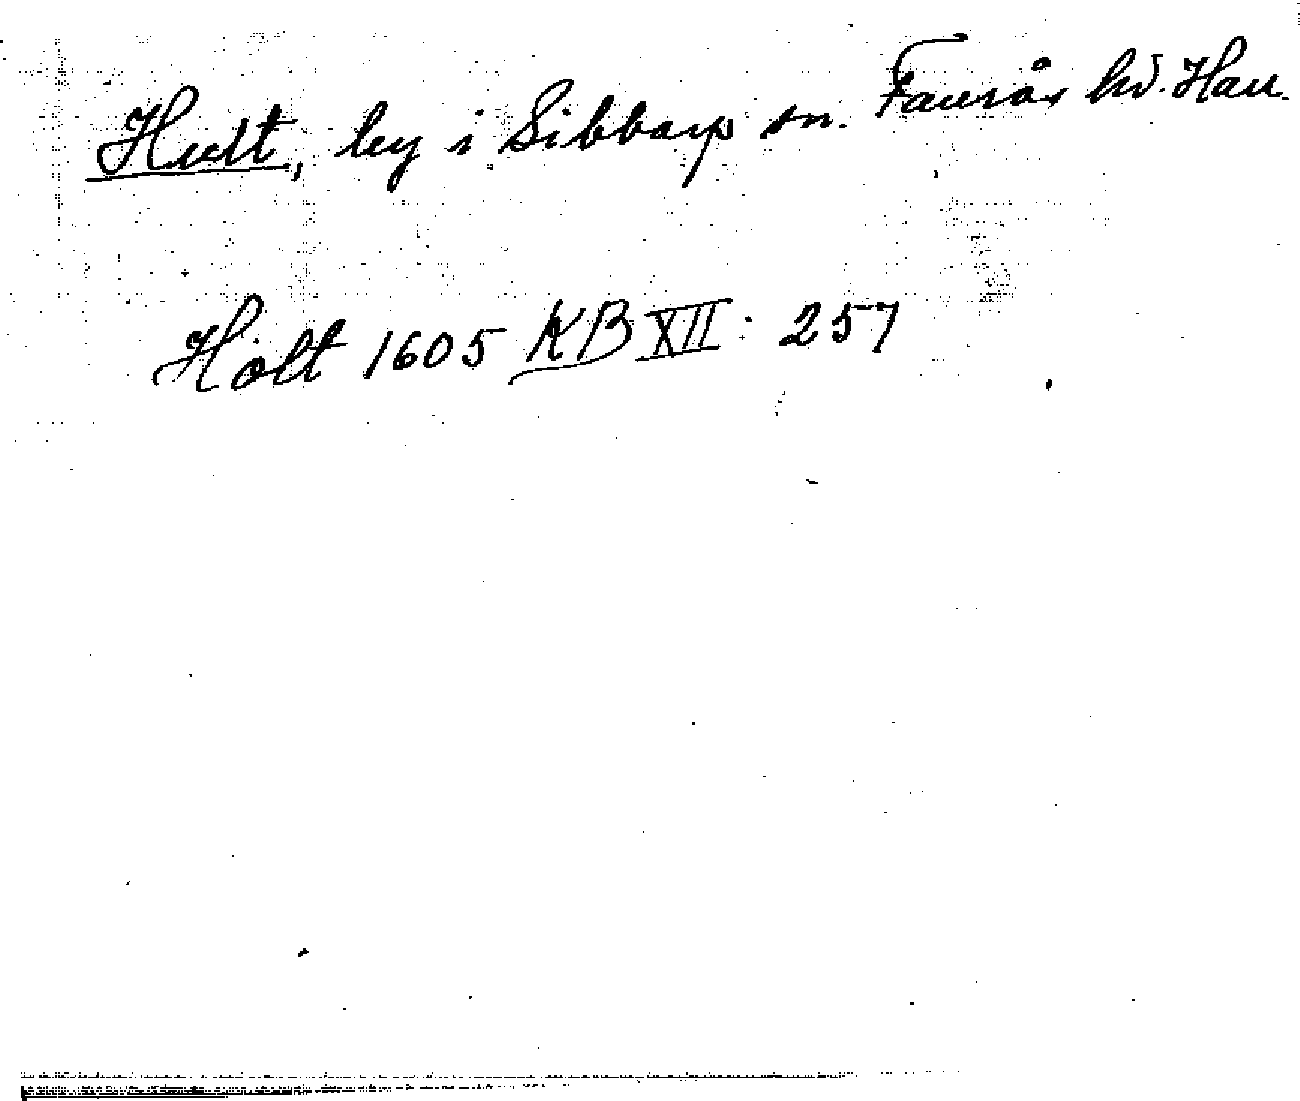 Hult, by i Sibbarp sn. Faurås hd. Hall.
Holt 1605 KB XII: 257